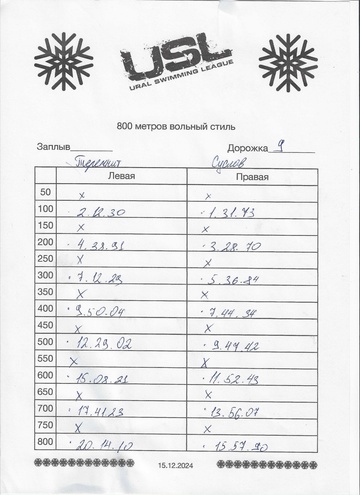 USL
URAL SWIMMING LEAGUE
800 метров вольный стиль
Заплыв________ Дорожка 9
Суслов
Левая Правая
50 x x
100 2.12.30 1.31.73
150 x x
200 4.38.91 3.28.70
250 x x
300 7.12.29 5.36.84
350 x x
400 9.50.04 7.44.34
450 x x
500 12.29.02 9.49.42
550 x x
600 15.08.21 11.52.43
650 x x
700 17.41.23 13.56.07
750 x x
800 20.14.10 15.57.90
15.12.2024